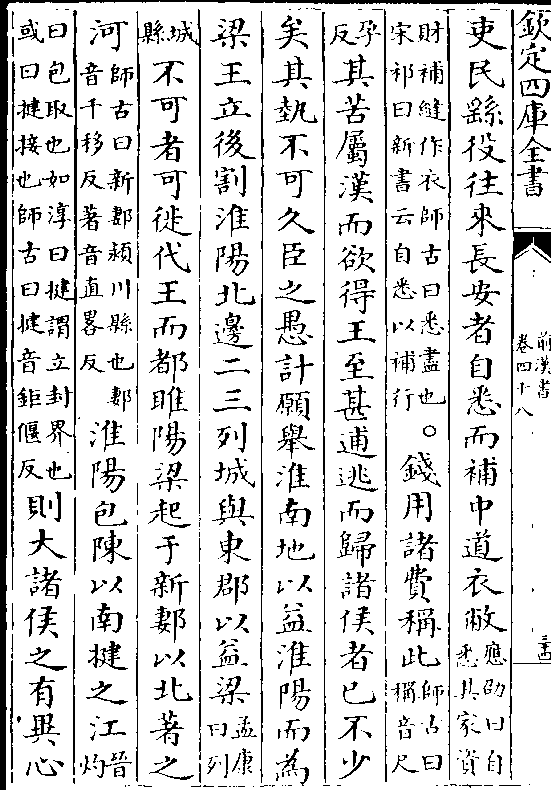 欽定四庫全書
前漢書
卷四十八
三十四
吏民繇役往來長安者自悉而補中道衣敝應劭曰自
悉其家資
財補縫作衣師古曰悉盡也
宋祁曰新書云自悉以補行。錢用諸費稱此師古曰
稱音尺
孕
反其苦屬漢而欲得王至甚逋逃而歸諸侯者已不少
矣其埶不可久臣之愚計願舉淮南地以益淮陽而為
梁王立後割淮陽北邊二三列城與東郡以益梁孟康
曰列
城
縣不可者可徙代王而都睢陽梁起于新郪以北著之
河師古曰新郪潁川縣也郪
音千移反著音直畧反淮陽包陳以南揵之江晉
灼
曰包取也如淳曰揵謂立封界也
或曰揵接也師古曰揵音鉅偃反則大諸侯之有異心